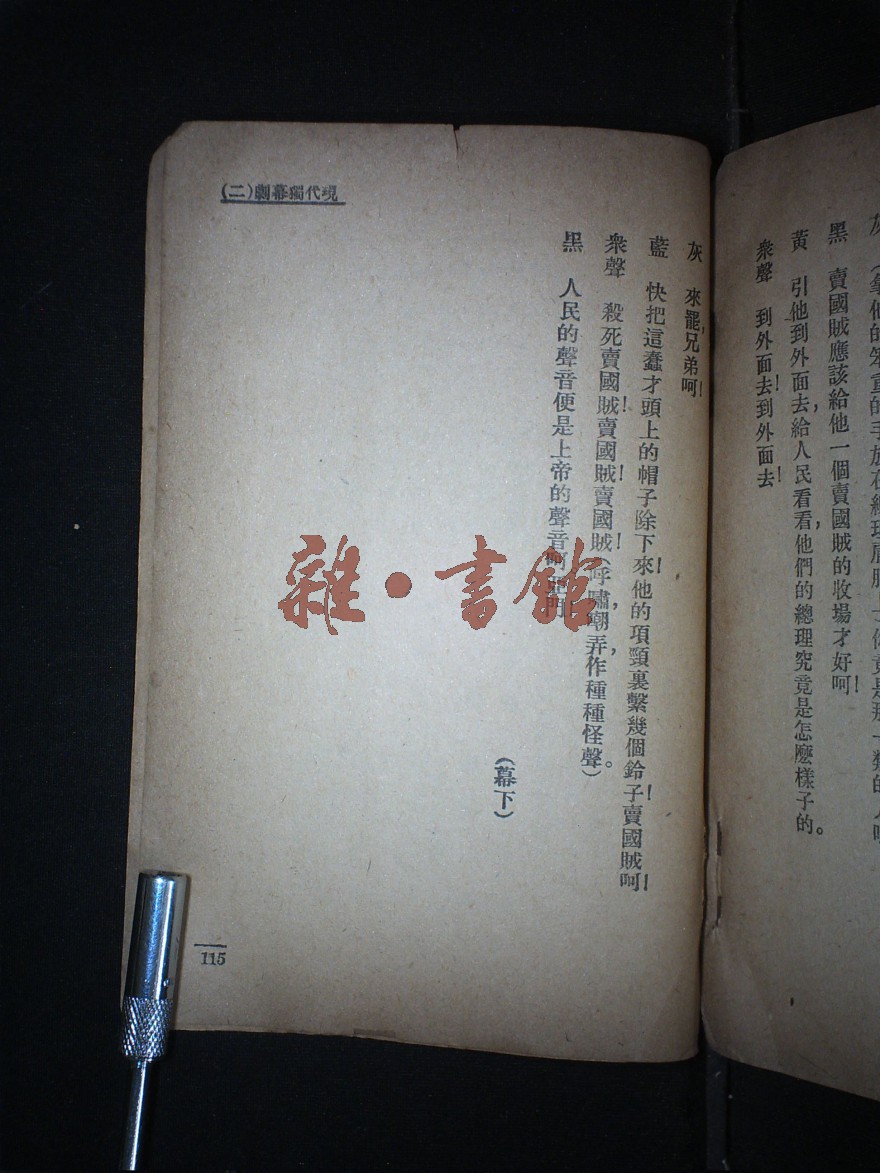 灰（拿他的笨重的手放在總理肩胛上）你竟是那一類的人呀
黑　賣國賊應該給他一個賣國賊的收場才好呵！
黃　引他到外面去，給人民看看，他們的總理究竟是怎麼樣子的。
衆聲　到外面去！到外面去！
現代獨幕劇(二)
灰　來罷，兄弟呵！
藍　快把這蠢才頭上的帽子除下來！他的項頸裏繫幾個鈴子！賣國賊呵！
衆聲　殺死賣國賊！賣國賊！賣國賊！（呼嘯，嘲弄，作種種怪聲。）
黑　人民的聲音便是上帝的聲音
（幕下）
115
雜·書館